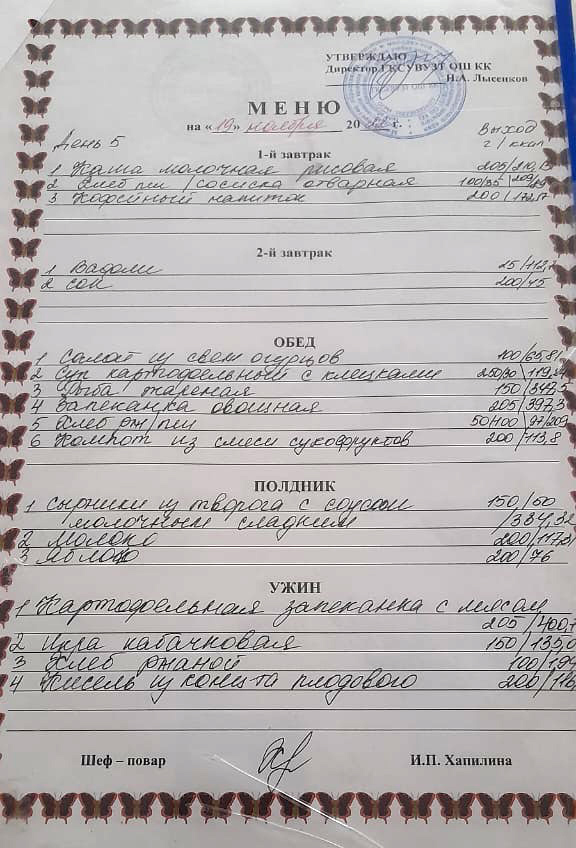 УТВЕРЖДАЮ
Директор ГКСУВУЗТ ОШ КК
Н.А. Лысенков
МЕНЮ
на «19» ноября 20 г.
День 5
Выход
г / ккал
1-й завтрак
1 Каша молочная рисовая 205/210,
2 Хлеб пш / сосиска отварная 100/35 / 209/
3 Кофейный напиток 200/172,17
2-й завтрак
1 Вафли 25/112,
2 Сок 200/45
ОБЕД
1 Салат из свеж огурцов 100/65,81
2 Суп картофельный с клецками 250/30/119,
3 Рыба жареная 150/347,5
4 Запеканка овощная 205/397,3
5 Хлеб рж/пш 50/100/97/209
6 Компот из смеси сухофруктов 200/113,8
ПОЛДНИК
1 Сырники из творога с соусом 150/50
молочным сладким /334,32
2 Молоко 200/117,31
3 Яблоко 200/76
УЖИН
1 Картофельная запеканка с мясом
205/400,
2 Икра кабачковая 150/135,0
3 Хлеб ржаной 100/194
4 Кисель из конц-та плодового 200/116
Шеф – повар И.П. Хапилина